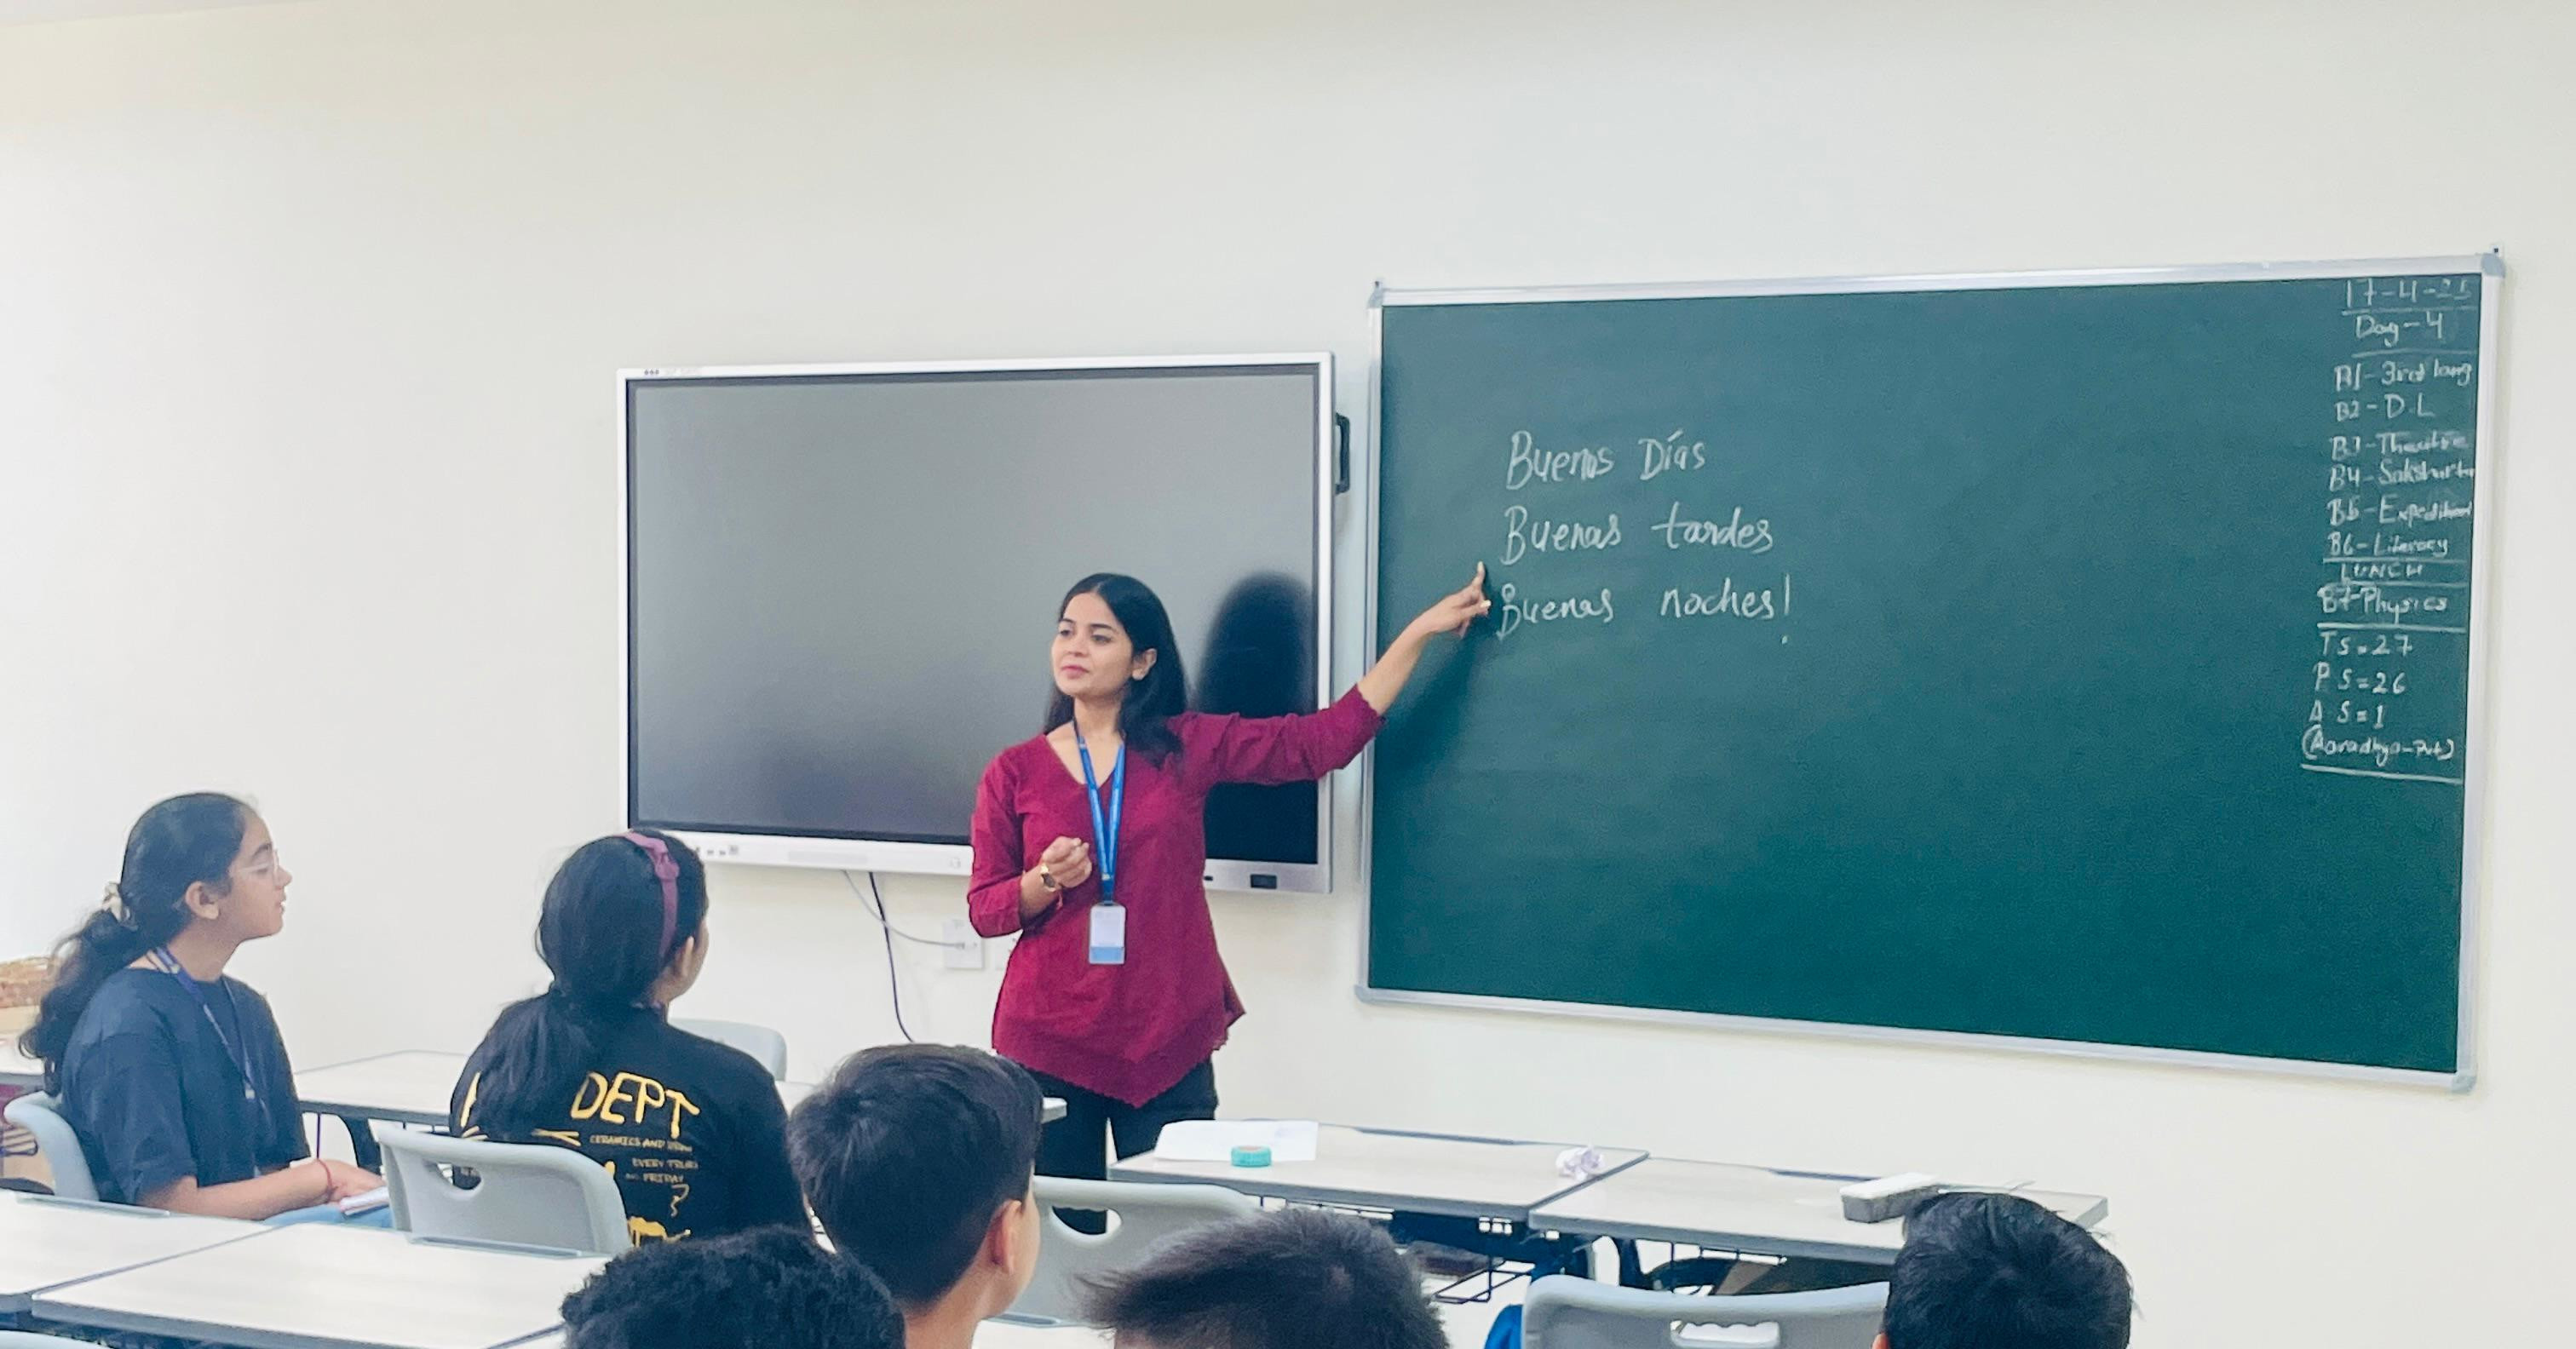 Buenos Días
Buenas tardes
Buenas noches!
17-4-25
Day-4
B1-3rd lang
B2-D.L
B3-Theatre
B4-Sakshart
B5-Expedition
B6-Literacy
LUNCH
B7-Physics
TS=27
PS=26
AS=1
(Aaradhya-
DEPT
CERAMICS AND
EVERY
FRIDAY
?